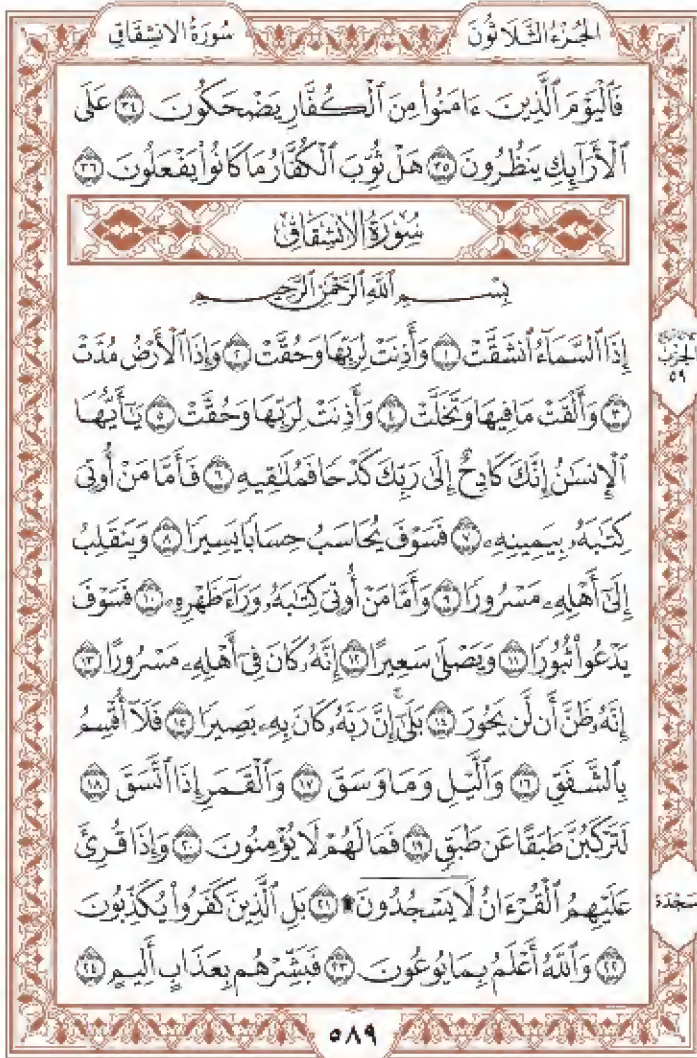 سُورَةُ الانشِقَاقِ
الجُزْءُ الثَّلَاثُونَ
فَٱلۡيَوۡمَ ٱلَّذِينَ ءَامَنُواْ مِنَ ٱلۡكُفَّارِ يَضۡحَكُونَ ٣٤ عَلَى
ٱلۡأَرَآئِكِ يَنظُرُونَ ٣٥ هَلۡ ثُوِّبَ ٱلۡكُفَّارُ مَا كَانُواْ يَفۡعَلُونَ ٣٦
سُورَةُ الانشِقَاقِ
بِسۡمِ ٱللَّهِ ٱلرَّحۡمَٰنِ ٱلرَّحِيمِ
إِذَا ٱلسَّمَآءُ ٱنشَقَّتۡ ١ وَأَذِنَتۡ لِرَبِّهَا وَحُقَّتۡ ٢ وَإِذَا ٱلۡأَرۡضُ مُدَّتۡ
٣ وَأَلۡقَتۡ مَا فِيهَا وَتَخَلَّتۡ ٤ وَأَذِنَتۡ لِرَبِّهَا وَحُقَّتۡ ٥ يَٰٓأَيُّهَا
ٱلۡإِنسَٰنُ إِنَّكَ كَادِحٌ إِلَىٰ رَبِّكَ كَدۡحٗا فَمُلَٰقِيهِ ٦ فَأَمَّا مَنۡ أُوتِيَ
كِتَٰبَهُۥ بِيَمِينِهِۦ ٧ فَسَوۡفَ يُحَاسَبُ حِسَابٗا يَسِيرٗا ٨ وَيَنقَلِبُ
إِلَىٰٓ أَهۡلِهِۦ مَسۡرُورٗا ٩ وَأَمَّا مَنۡ أُوتِيَ كِتَٰبَهُۥ وَرَآءَ ظَهۡرِهِۦ ١٠ فَسَوۡفَ
يَدۡعُواْ ثُبُورٗا ١١ وَيَصۡلَىٰ سَعِيرًا ١٢ إِنَّهُۥ كَانَ فِيٓ أَهۡلِهِۦ مَسۡرُورًا ١٣
إِنَّهُۥ ظَنَّ أَن لَّن يَحُورَ ١٤ بَلَىٰٓۚ إِنَّ رَبَّهُۥ كَانَ بِهِۦ بَصِيرٗا ١٥ فَلَآ أُقۡسِمُ
بِٱلشَّفَقِ ١٦ وَٱلَّيۡلِ وَمَا وَسَقَ ١٧ وَٱلۡقَمَرِ إِذَا ٱتَّسَقَ ١٨
لَتَرۡكَبُنَّ طَبَقًا عَن طَبَقٖ ١٩ فَمَا لَهُمۡ لَا يُؤۡمِنُونَ ٢٠ وَإِذَا قُرِئَ
عَلَيۡهِمُ ٱلۡقُرۡءَانُ لَا يَسۡجُدُونَۤ۩ ٢١ بَلِ ٱلَّذِينَ كَفَرُواْ يُكَذِّبُونَ
٢٢ وَٱللَّهُ أَعۡلَمُ بِمَا يُوعُونَ ٢٣ فَبَشِّرۡهُم بِعَذَابٍ أَلِيمٍ ٢٤
الحِزْبُ
٥٩
سَجْدَة
٥٨٩